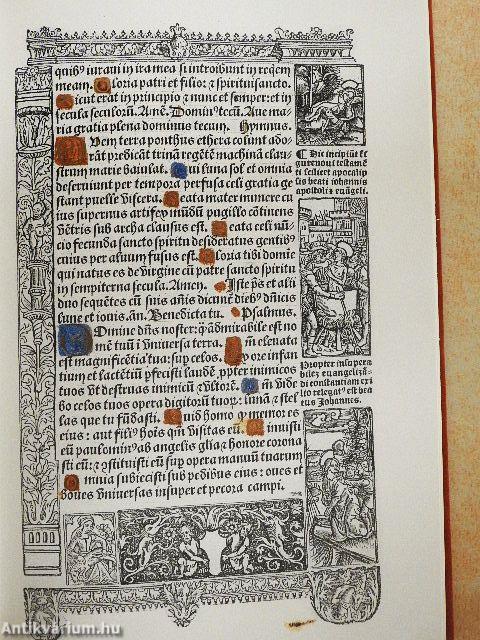 quibꝰ iuraui in ira mea si introibunt in requiem
meam. Gloria patri et filio: ⁊ spirituisancto.
Sicut erat in principio ⁊ nunc et semper: et in
secula seculoꝝ. Amē. Dominꝰ tecū. Aue ma
ria gratia plena dominus tecum. Hymnus.
Quem terra ponthus ethera colunt ado-
rant predicāt trinā regētē machinā clau
strum marie baiulat. Cui luna sol et omnia
deseruiunt per tempora perfusa celi gratia ge
stant puelle viscera. Beata mater munere cu
ius supernus artifex mūdū pugillo cōtinens
vētris sub archa clausus est. Beata celi nū-
cio fecunda sancto spiritu desideratus gentibꝰ
cuius per aluum fusus est. Gloria tibi domine
qui natus es de virgine cū patre sancto spiritu
in sempiterna secula. Amen. Iste ps̄ et alii
duo sequētes cū suis añis dicunē diebꝰ dñicis
lune et iouis. añ. Benedicta tu. Psalmus.
Domine dñs noster: ꝙ admirabile est no
men tuū ī vniuersa terra. Qm̄ eleuata
est magnificētia tua: sup celos. Ex ore infan
tium et lactētiū ꝑfecisti laudē ꝓpter inimicos
tuos vt destruas inimicū ⁊ vltorē. Qm̄ vide
bo celos tuos opera digitorū tuoꝝ: lunā ⁊ stel
las que tu fūdasti. Quid homo ꝙ memor es
eius: aut filiꝰ hoīs qm̄ visitas eū. Minuisti
eū paulominꝰ ab angelis glia ⁊ honore corona
sti eū: ⁊ ꝯstituisti eū sup opera manuū tuarum
Omnia subiecisti sub pedibus eius: oues et
boues vniuersas insuper et pecora campi.
¶ Hic incipiūt f
gure noui testamē
ti scilicet apocalip
sis beati iohannis
apostoli ⁊ euāgeli.
Propter insupera
bilez euangelizā-
di constantiam exi
lio relegatꝰ est bea
tus Johannes.
Antikvárium.hu